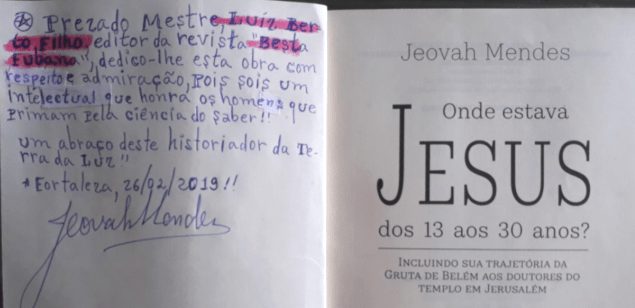 Prezado Mestre, Luiz Ber-
to Filho, editor da revista "Besta
Fubana", dedico-lhe esta obra com
respeito e admiração, pois sois um
intelectual que honra os homens que
primam pela ciência do saber!!
Um abraço deste historiador da Te-
rra da Luz"
*Fortaleza, 26/02/2019!!
Jeovah Mendes
Jeovah Mendes
Onde estava
JESUS
dos 13 aos 30 anos?
INCLUINDO SUA TRAJETÓRIA DA
GRUTA DE BELÉM AOS DOUTORES DO
TEMPLO EM JERUSALÉM